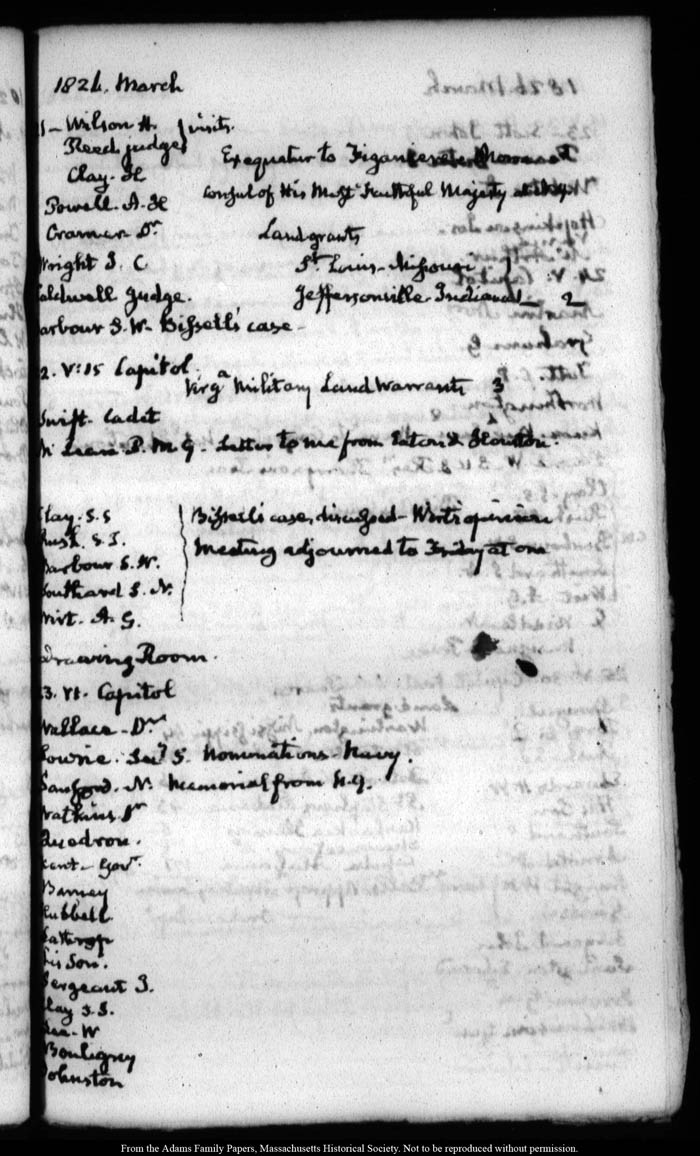 1826. March
1 - Wilson H. } visits.
Reed judge
Exequatur to
Clay. H
Consul of His Most Faithful Majesty
Powell. A. H
Cramer Dr.
Land grants
Wright S. C
St. Louis - Missouri
Caldwell judge.
Jeffersonville - Indiana - 2
Barbour S. W. Bissell's case -
2. V:15 Capitol.
Virga Military Land Warrants 3
Swift. Cadet
McLean P. M. G. Letter to me from Eaton & Houston.
Clay. S. S
Bissell's case, discussed - Wirt's opinion
Rush. S. T.
Meeting adjourned to Friday at one
Barbour S. W.
Southard S. N.
Wirt. A. G.
Drawing Room.
3. VI. Capitol
Wallace - Dr.
Lowrie. Secy S. Nominations - Navy.
Sanford. N. Memorial from N.Y.
Watkins Dr
Kent - Govr.
Barney
Hubbell
Lathrop
His Son.
Sergeant J.
Clay S. S.
Lee - W
Bouligny
Johnston
From the Adams Family Papers, Massachusetts Historical Society. Not to be reproduced without permission.